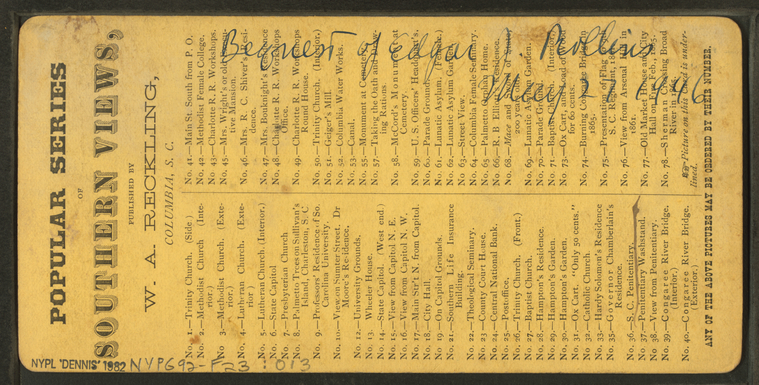 POPULAR SERIES
OF
SOUTHERN VIEWS,
PUBLISHED BY
W. A. RECKLING,
COLUMBIA, S. C.
No. 1.—Trinity Church. (Side)
No. 2.—Methodist Church (Inte-
rior.)
No. 3.—Methodist Church. (Exte-
rior.)
No. 4.—Lutheran Church. (Exte-
rior.)
No. 5.—Lutheran Church. (Interior.)
No. 6.—State Capitol
No. 7.—Presbyterian Church
No. 8.—Palmetto Trees on Sullivan's
Island, Charleston, S. C
No. 9.—Professors' Residence of So.
Carolina University.
No. 10.—View on Sumter Street, Dr
Moore's Residence.
No. 12.—University Grounds.
No. 13.—Wheeler House.
No. 14.—State Capitol. (West end.)
No. 15.—View from Capitol N. E.
No. 16.—View from Capitol N. W.
No. 17.—Main St'r't N. from Capitol.
No. 18.—City Hall.
No. 19—On Capitol Grounds.
No. 21.—Southern Life Insurance
Building.
No. 22.—Theological Seminary.
No. 23 County Court House.
No. 24.—Central National Bank.
No. 25.—Post Office.
No. 26.—Trinity Church. (Front.)
No. 27.—Baptist Church.
No. 28.—Hampton's Residence.
No. 29.—Hampton's Garden.
No. 30.—Hampton's Garden.
No. 31.—Ox Cart, "Only 50 cents."
No. 32.—Catholic Church.
No. 33.—Hardy Solomon's Residence
No. 35.—Governor Chamberlain's
Residence.
No. 36.—S. C. Penitentiary.
No. 37.—Penitentiary Washstand.
No. 38.—View from Penitentiary.
No. 39.—Congaree River Bridge.
(Interior.)
No. 40.—Congaree River Bridge.
(Exterior.)
No. 41.—Main St. South from P. O.
No. 42.—Methodist Female College.
No. 43.—Charlotte R. R. Workshops
tive Mansion.
No. 46.—Mrs. R. C. Shiver's Resi-
dence.
No. 47.—Mrs. Bouknight's Residence
No. 48.—Charlotte R. R. Workshops
Office.
No. 49.—Charlotte R. R. Workshops
Round House.
No. 50.—Trinity Church. (Interior.)
No. 51.—Geiger's Mill.
No. 52.—Columbia Water Works.
No. 53.—Canal.
No. 55.—Monument at Cemetery.
No. 57.—Taking the Oath and Draw-
ing Rations
No. 58.—McCord's Monument at
Cemetery.
No. 59—U. S. Officers' Headquart's.
No. 60.—Parade Grounds.
No. 61.—Lunatic Asylum. (Female.)
No. 62.—Lunatic Asylum Garden.
No. 63.—Street View.
No. 64.—Columbia Female Seminary.
No. 65.—Palmetto Orphan Home.
No. 66.—R. B Elliott's Residence.
No. 69.—Lunatic Asylum Garden.
No. 70.—Parade Ground.
No. 71.—Baptist Church. (Interior.)
No. 73—Ox Cart,
for 60 cents.
No. 74.—Burning Congaree Bridge in
1865.
No. 75.—Presentation of Flag
S. C. Regiment,
No. 76.—View from Arsenal Hill in
1861.
No. 77.—Old Market House and City
Hall on Fire, Feb., 1865.
No. 78.—Sherman Crossing Broad
River in 1865.
Picture on this card is under-
lined.
ANY OF THE ABOVE PICTURES MAY BE ORDERED BY THEIR NUMBER.
Bequest of Edgar
1946
NYPL 'DENNIS' 1982
NYPG92-F23 013